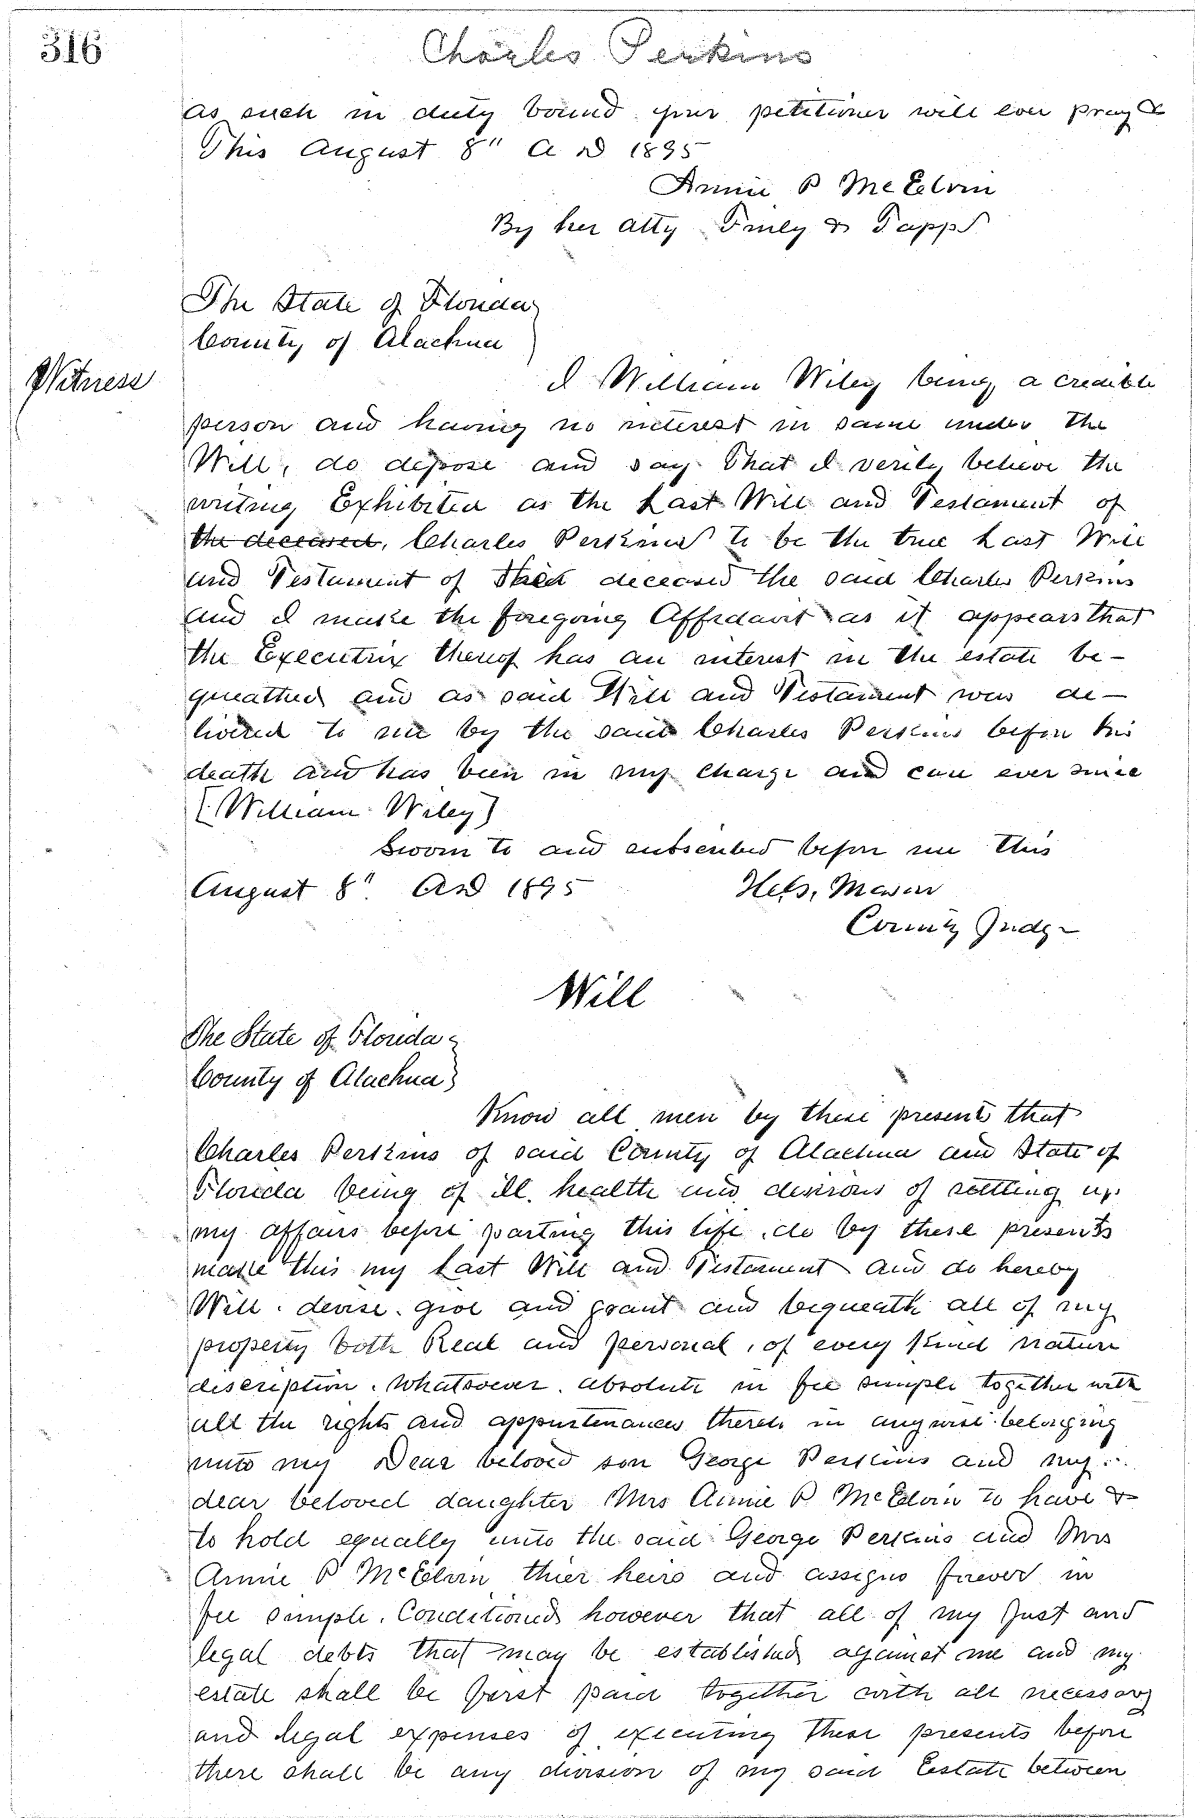 316
Charles Perkins
as such in duty bound your petitioner will ever pray &
This August 8" A D 1895
Annie P McElvin
By her atty Finley & Tapps
The State of Florida
County of Alachua
Witness
I William Wiley being a credible
person and having no interest in same under the
Will, do depose and say that I verily believe the
writing Exhibited as the Last Will and Testament of
the deceased, Charles Perkins to be the true Last Will
and Testament of deceased the said Charles Perkins
and I make the foregoing Affidavit as it appears that
the Executrix thereof has an interest in the estate be-
queathed and as said Will and Testament was de-
livered to me by the said Charles Perkins before his
death and has been in my charge and care ever since
[William Wiley]
Sworn to and subscribed before me this
August 8" AD 1895 Mason
County Judge
Will
The State of Florida
County of Alachua
Know all men by these presents that
Charles Perkins of said County of Alachua and State of
Florida being of ill health and desirous of settling up
my affairs before parting this life, do by these presents
make this my Last Will and Testament and do hereby
Will, devise, give and grant and bequeath all of my
property both Real and personal, of every kind nature
discription, whatsoever, absolute in fee simple together with
all the rights and appurtenances thereto in anywise belonging
unto my Dear beloved son George Perkins and my
dear beloved daughter Mrs Annie P McElvin to have &
to hold equally unto the said George Perkins and Mrs
Annie P McElvin thier heirs and assigns forever in
fee simple. Conditioned however that all of my Just and
legal debts that may be established against me and my
estate shall be first paid together with all necessary
and legal expenses of executing these presents before
there shall be any division of my said Estate between